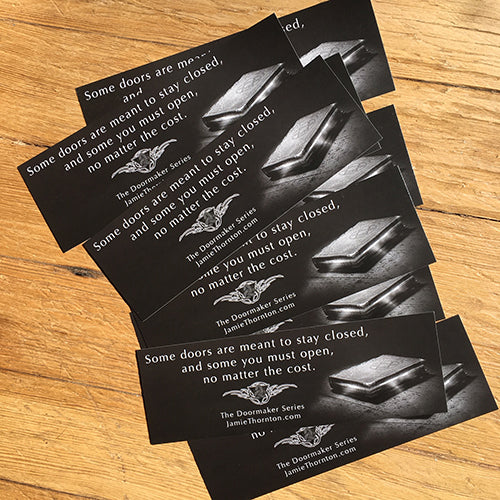 Some doors are meant to stay closed,
and
Some doors are meant to stay closed,
and some you must open,
no matter the cost.
The Doormaker Series
JamieThornton.com
Some doors are meant to stay closed,
and some you must open,
no matter the cost.
The Doormaker Series
JamieThornton.com
Some doors are meant to stay closed,
and some you must open,
no matter the cost.
The Doormaker Series
JamieThornton.com
Some doors are meant to stay closed,
and some you must open,
no matter the cost.
The Doormaker Series
JamieThornton.com
no matter the cost.
The Doormaker Series
JamieThornton.com